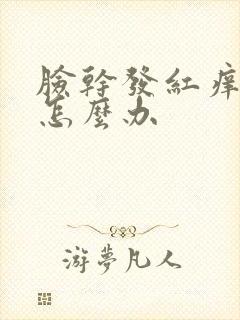 臉幹發紅痒
怎麼办
游夢凡人